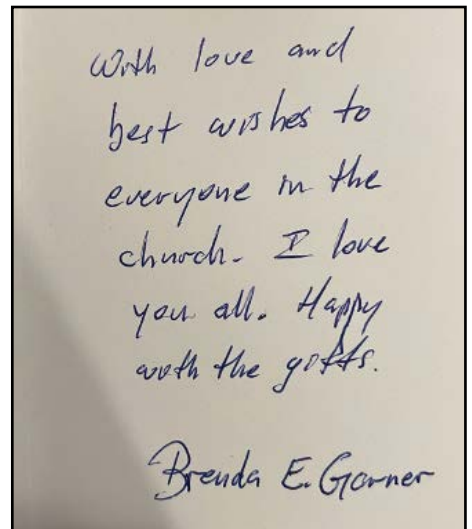 With love and
best wishes to
everyone in the
church. I love
you all. Happy
with the gifts.
Brenda E. Garner